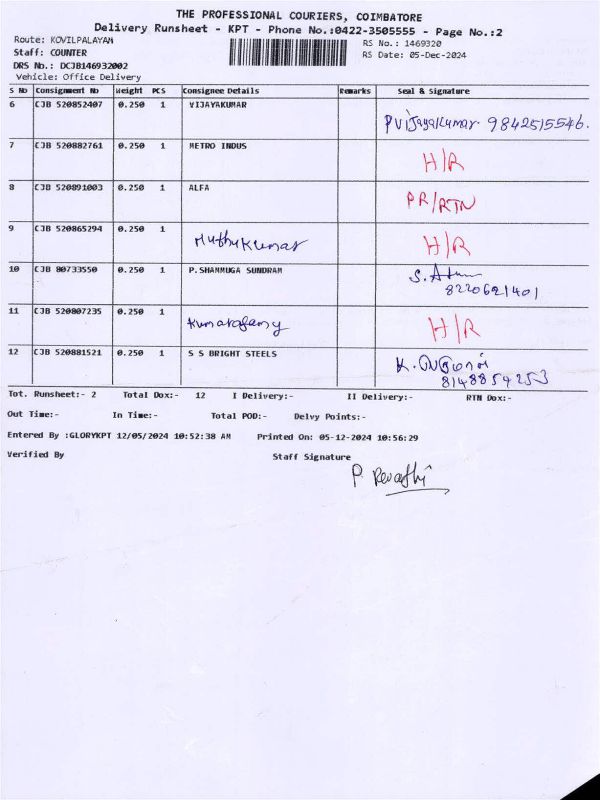 THE PROFESSIONAL COURIERS, COIMBATORE
Delivery Runsheet - KPT - Phone No.:0422-3505555 - Page No.:2
Route: KOVILPALAYAM
RS No.: 1469320
Staff: COUNTER
RS Date: 05-Dec-2024
DRS No.: DCJB146932002
Vehicle: Office Delivery
S No Consignment No Weight PCS Consignee Details Remarks Seal & Signature
6 CJB 520852407 0.250 1 VIJAYAKUMAR
P Vijayakumar 9842515546.
7 CJB 520882761 0.250 1 METRO INDUS
H/R
8 CJB 520891003 0.250 1 ALFA
PR/RTN
9 CJB 520865294 0.250 1
Muthukumar H/R
10 CJB 80733550 0.250 1 P.SHANMUGA SUNDRAM
S.
8220621401
11 CJB 520807235 0.250 1
H/R
12 CJB 520881521 0.250 1 S S BRIGHT STEELS
K.
8148854253
Tot. Runsheet:- 2 Total Dox:- 12 I Delivery:- II Delivery:- RTN Dox:-
Out Time:- In Time:- Total POD:- Delvy Points:-
Entered By :GLORYKPT 12/05/2024 10:52:38 AM Printed On: 05-12-2024 10:56:29
Verified By Staff Signature
P. Revathi